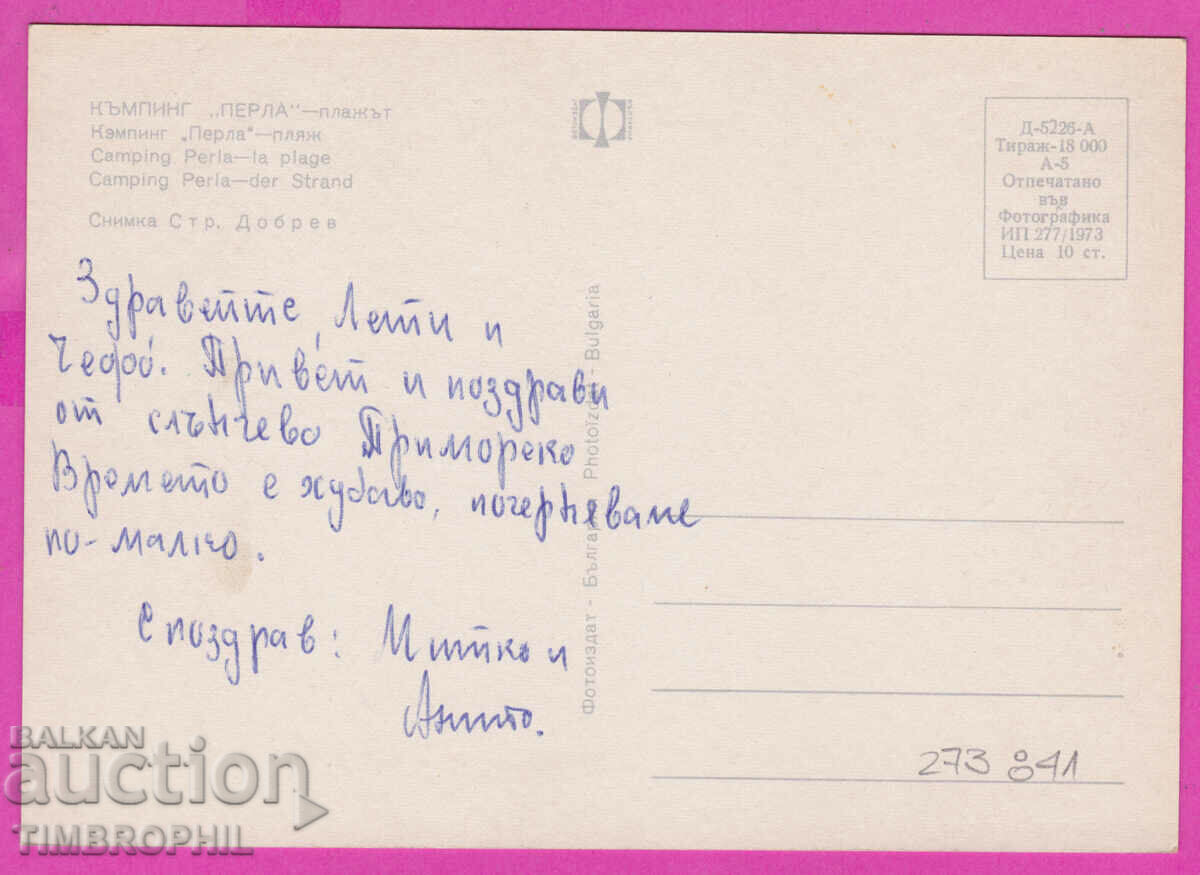 КЪМПИНГ „ПЕРЛА"—плажът
Кэмпинг „Перла"—пляж
Camping Perla—la plage
Camping Perla—der Strand
Снимка Стр. Добрев
Д-5226-А
Тираж-18 000
А-5
Отпечатано
във
Фотографика
ИП 277/1973
Цена 10 ст.
Здравейте, Лети и
Чефо. Привет и поздрави
от слънчево Приморско
Времето е хубаво, почерняваме
по-малко.
С поздрав: Митко и
Фотоиздат - България Photoizdat - Bulgaria
273 841
BALKAN
auction
TIMBROPHIL